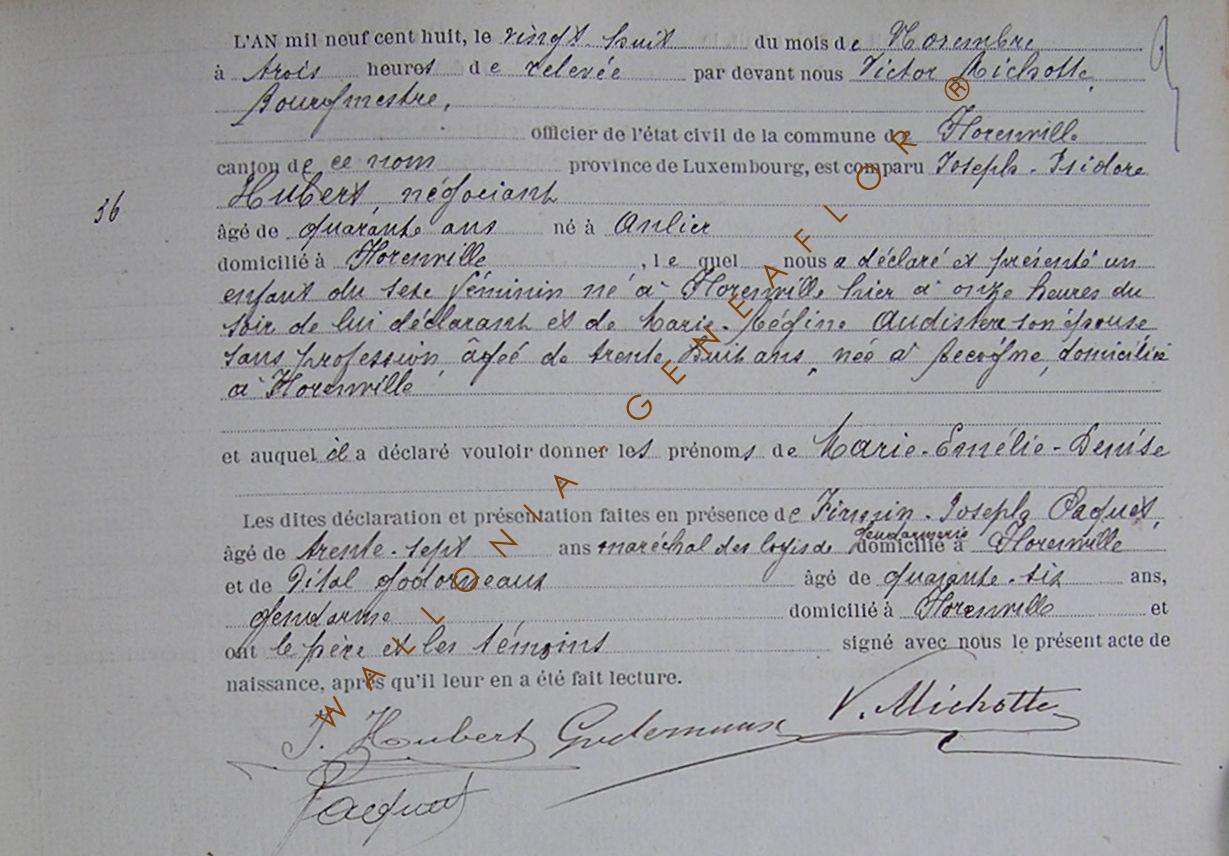 L'AN mil neuf cent huit, le vingt-huit du mois de Novembre
à trois heures de relevée par devant nous Victor Michotte,
Bourgmestre,
officier de l'état civil de la commune de Florenville
canton de ce nom province de Luxembourg, est comparu Joseph-Isidore
36 Hubert négociant
âgé de quarante ans né à Anlier
domicilié à Florenville, le quel nous a déclaré et présenté un
enfant du sexe féminin né à Florenville hier à onze heures du
soir de lui déclarant et de Marie-Régine Audistere son épouse
sans profession, âgée de trente huit ans, née à Recogne, domiciliée
à Florenville
et auquel il a déclaré vouloir donner les prénoms de Marie-Emélie-Denise
Les dites déclaration et présentation faites en présence de Firmin-Joseph Paquet,
âgé de trente-sept ans maréchal des logis de gendarmerie domicilié à Florenville
et de Vital Godormeaux âgé de quarante-six ans,
gendarme domicilié à Florenville et
ont le père et les témoins signé avec nous le présent acte de
naissance, après qu'il leur en a été fait lecture.
J. Hubert V. Michotte
Paquet
WALLONIA - GENEAFLOR ®